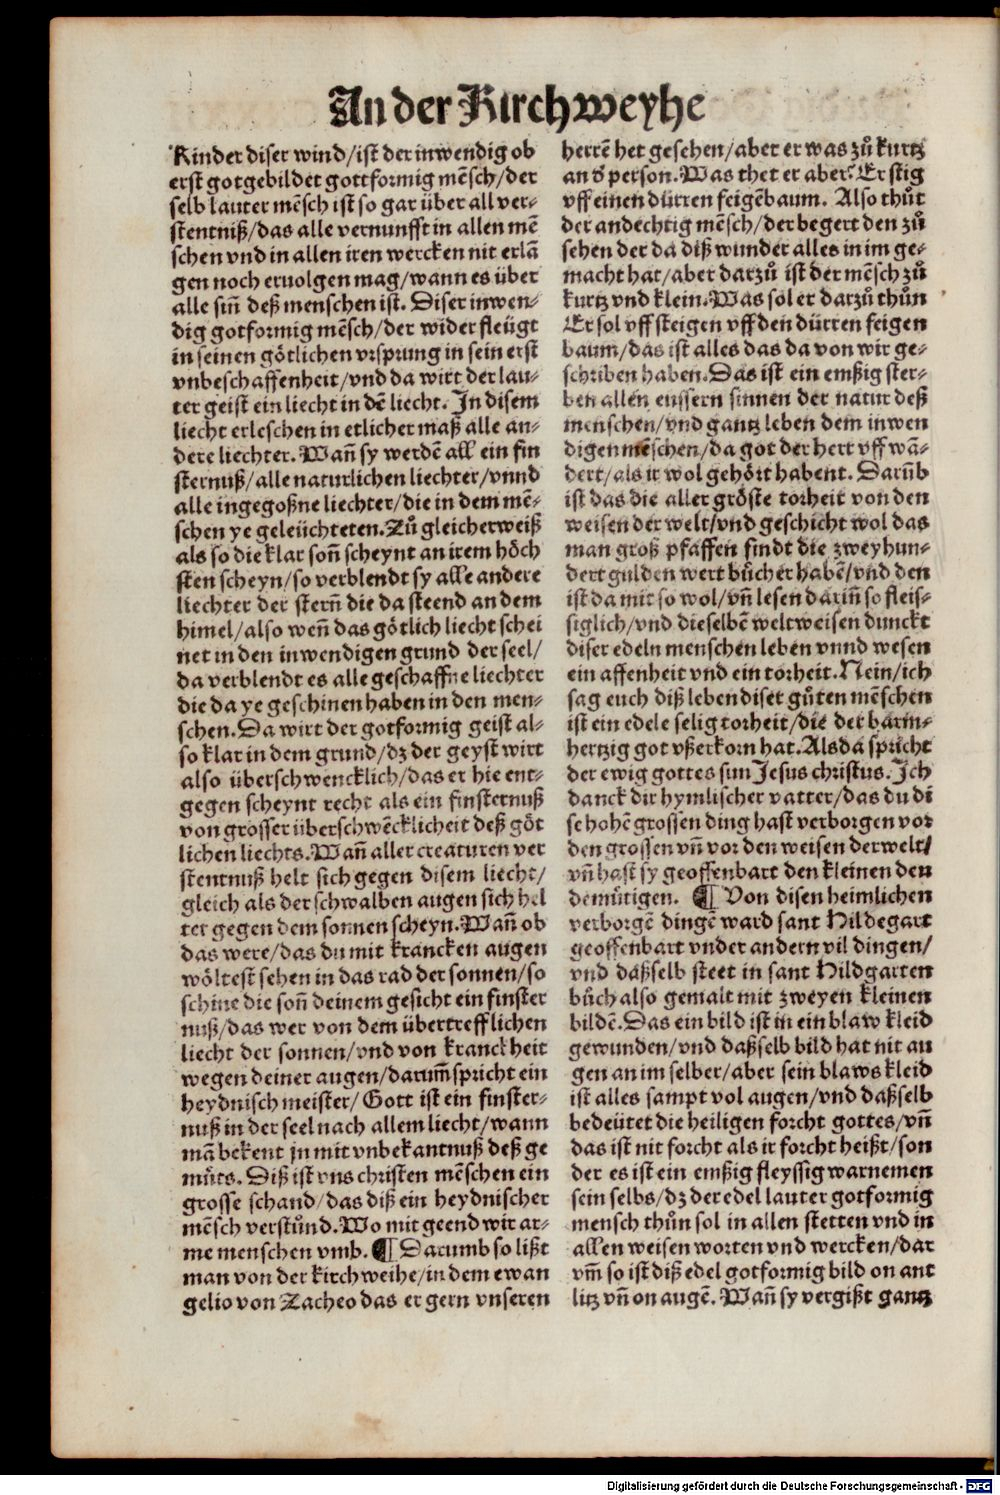 An der Kirchweyhe
Kinder diser wind/ist der inwendig ob
erst gotgebildet gottformig mẽsch/der
selb lauter mẽsch ist so gar über all ver-
stentniß/das alle vernunfft in allen mẽ
schen vnd in allen iren wercken nit erlã
gen noch eruolgen mag/wann es über
alle siñ deß menschen ist. Diser inwen-
dig gotformig mẽsch/der wider fleügt
in seinen götlichen vrsprung in sein erst
vnbeschaffenheit/vnd da wirt der lau-
ter geist ein liecht in dẽ liecht. In disem
liecht erleschen in etlicher maß alle an-
dere liechter. Wañ sy werdẽ all ein fin
sternuß/alle naturlichen liechter/vnnd
alle ingegoßne liechter/die in dem mẽ-
schen ye geleüchteten. Zů gleicherweiß
als so die klar soñ scheynt an irem höch
sten scheyn/so verblendt sy alle andere
liechter der sterñ die da steend an dem
himel/also weñ das götlich liecht schei
net in den inwendigen grund der seel/
da verblendt es alle geschaffne liechter
die da ye geschinen haben in den men-
schen. Da wirt der gotformig geist al-
so klar in dem grund/dz der geyst wirt
also überschwencklich/das er hie ent-
gegen scheynt recht als ein finsternuß
von grosser überschwẽcklicheit deß göt
lichen liechts. Wañ aller creaturen ver
stentnuß helt sich gegen disem liecht/
gleich als der schwalben augen sich hel
ter gegen dem sonnen scheyn. Wañ ob
das were/das du mit krancken augen
wöltest sehen in das rad der sonnen/so
schine die soñ deinem gesicht ein finster
nuß/das wer von dem übertrefflichen
liecht der sonnen/vnd von kranckheit
wegen deiner augen/darum̃ spricht ein
heydnisch meister/Gott ist ein finster-
nuß in der seel nach allem liecht/wann
mã bekent jn mit vnbekantnuß deß ge
müts. Diß ist vns christen mẽschen ein
grosse schand/das diß ein heydnischer
mẽsch verstůnd. Wo mit geend wir ar-
me menschen vmb. ¶ Darumb so lißt
man von der kirchweihe/in dem ewan
gelio von Zacheo das er gern vnseren
herrẽ het gesehen/aber er was zů kurtz
an d' person. Was thet er aber? Er stig
vff einen dürren feigẽbaum. Also thůt
der andechtig mẽsch/der begert den zů
sehen der da diß wunder alles in im ge-
macht hat/aber darzů ist der mẽsch zů
kurtz vnd klein. Was sol er darzů thůn
Er sol vff steigen vff den dürren feigen
baum/das ist alles das da von wir ge-
schriben haben. Das ist ein emßig ster-
ben allen eussern sinnen der natur deß
menschen/vnd gantz leben dem inwen
digen mẽschen/da got der herr vff wã-
dert/als ir wol gehört habent. Darũb
ist das die aller gröste torheit von den
weisen der welt/vnd geschicht wol das
man groß pfaffen findt die zweyhun-
dert gulden wert bůcher habẽ/vnd den
ist da mit so wol/vñ lesen dariñ so fleis-
siglich/vnd dieselbẽ weltweisen dunckt
diser edeln menschen leben vnnd wesen
ein affenheit vnd ein torheit. Nein/ich
sag euch diß leben diser gůten mẽschen
ist ein edele selig torheit/die der barm-
hertzig got vßerkorn hat. Als da spricht
der ewig gottes sun Jesus christus. Ich
danck dir hymlischer vatter/das du di
se hohẽ grossen ding hast verborgen vor
den grossen vñ vor den weisen der welt/
vñ hast sy geoffenbart den kleinen den
demütigen. ¶ Von disen heimlichen
verborgẽ dingẽ ward sant Hildegart
geoffenbart vnder andern vil dingen/
vnd daßselb steet in sant Hildgarten
bůch also gemalt mit zweyen kleinen
bildẽ. Das ein bild ist in ein blaw kleid
gewunden/vnd daßselb bild hat nit au
gen an im selber/aber sein blaws kleid
ist alles sampt vol augen/vnd daßselb
bedeütet die heiligen forcht gottes/vñ
das ist nit forcht als ir forcht heißt/son
der es ist ein emßig fleyssig warnemen
sein selbs/dz der edel lauter gotformig
mensch thůn sol in allen stetten vnd in
allen weisen worten vnd wercken/dar
vm̃ so ist diß edel gotformig bild on ant
litz vñ on augẽ. Wañ sy vergißt gantz
Digitalisierung gefördert durch die Deutsche Forschungsgemeinschaft - DFG